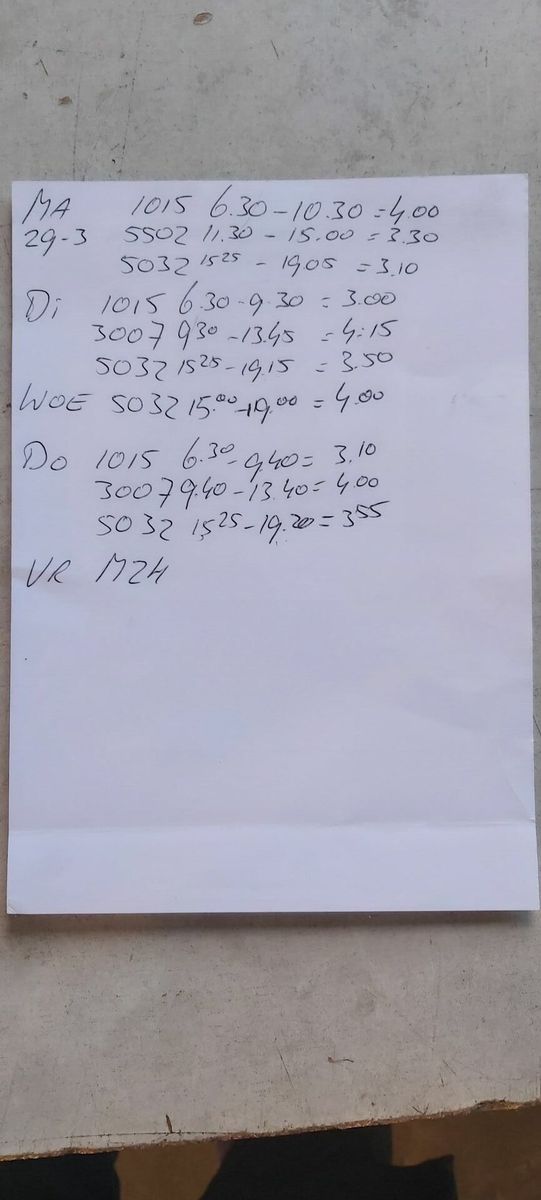 MA 1015 6.30 - 10.30 = 4.00
29-3 5502 11.30 - 15.00 = 3.30
5032 15 25 - 19.05 = 3.10
Di 1015 6.30 - 9.30 = 3.00
3007 9 30 - 13.45 = 4:15
5032 15 25 - 19.15 = 3.50
WOE 5032 15.00 - 19.00 = 4.00
Do 1015 6.30 - 9.40 = 3.10
3007 9.40 - 13.40 = 4.00
5032 15 25 - 19.20 = 3 55
VR MZH